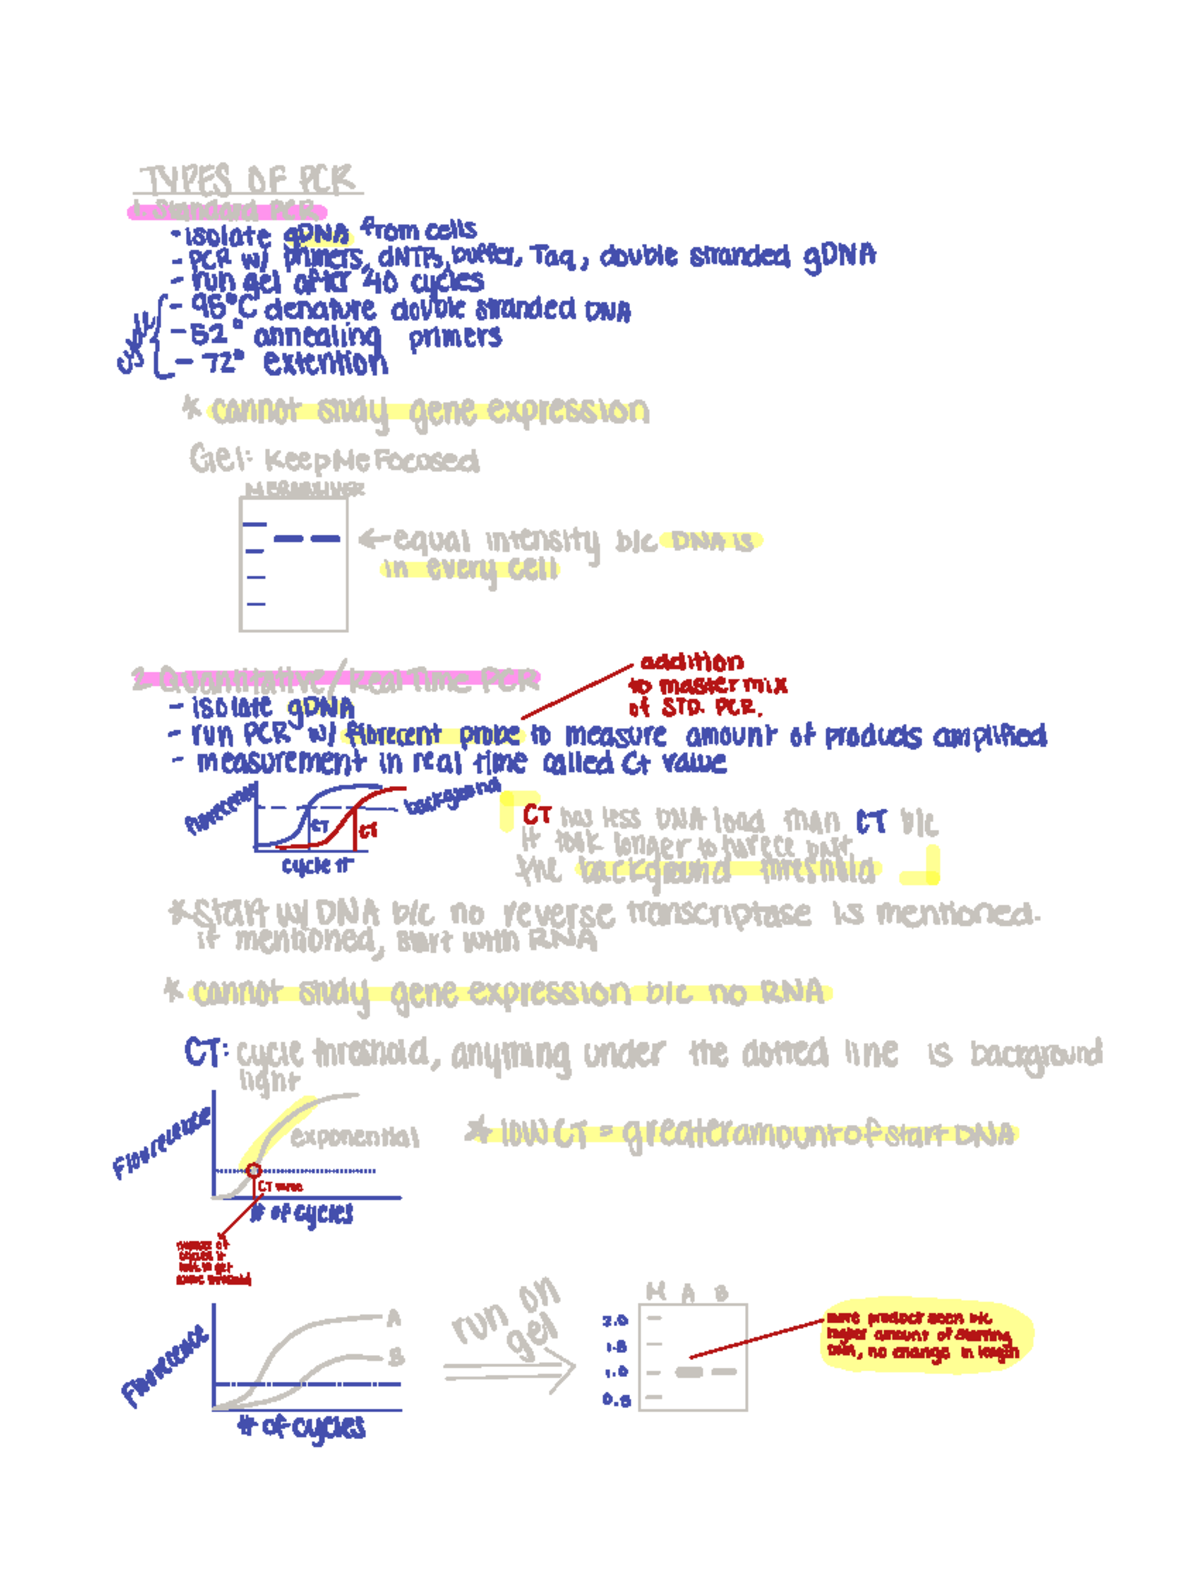 TYPES OF PCR
1. Standard PCR
- isolate gDNA from cells
- PCR w/ primers, dNTPs, buffer, Taq, double stranded gDNA
- run gel after 40 cycles
cycle
- 95°C denature double stranded DNA
- 52° annealing primers
- 72° extention
* cannot study gene expression
Gel: KeepMeFocused
M
← equal intensity b/c DNA is
in every cell
2. Quantitative/Real Time PCR
addition
to master mix
of STD. PCR.
- isolate gDNA
- run PCR w/ florecent probe to measure amount of products amplified
- measurement in real time called Ct value
background
CT
CT
cycle #
CT has less DNA load than CT b/c
it took longer to
the background threshold
*Start w/ DNA b/c no reverse transcriptase is mentioned.
if mentioned, start with RNA
* cannot study gene expression b/c no RNA
CT: cycle threshold, anything under the dotted line is background
light
Flourecence
exponential
* low CT = greater amount of start DNA
CT
# of cycles
number of
cycles it
took to get
threshold
Flourecence
A
B
# of cycles
run on
gel
M A B
2.0
1.5
1.0
0.5
more product seen b/c
higher amount of starting
DNA, no change in length